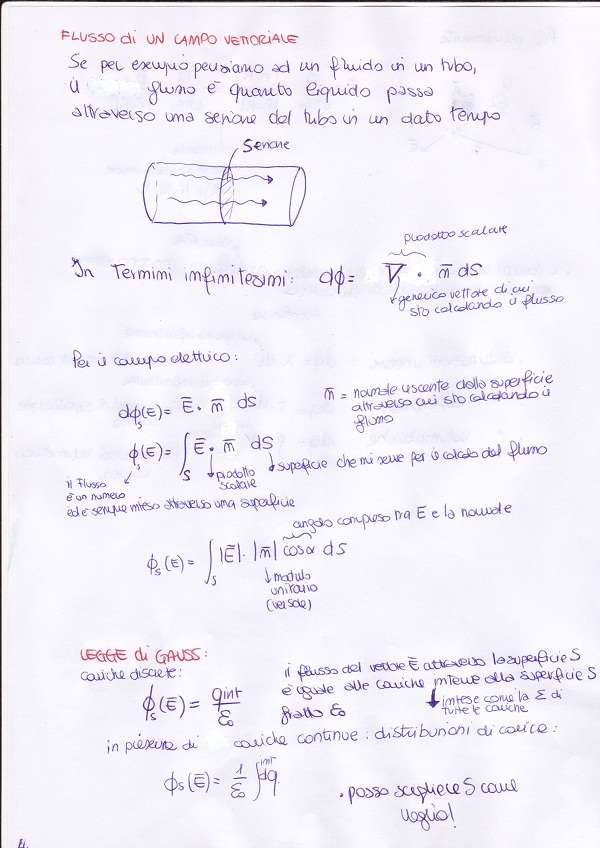 FLUSSO di UN CAMPO VETTORIALE
Se per esempio pensiamo ad un fluido in un tubo,
il flusso è quanto liquido passa
attraverso una sezione del tubo in un dato tempo
Sezione
prodotto scalare
In Termini infinitesimi: dϕ = V̄ · n̄ dS
generico vettore di cui
sto calcolando il flusso
Per il campo elettrico:
dϕs(E) = Ē · n̄ dS
n̄ = normale uscente dalla superficie
attraverso cui sto calcolando il
flusso
ϕs(E) = ∫S Ē · n̄ dS
prodotto scalare
superficie che mi serve per il calcolo del flusso
il Flusso
è un numero
ed è sempre inteso attraverso una superficie
angolo compreso tra E e la normale
ϕs(E) = ∫S |Ē| · |n̄| cosα dS
modulo
unitario
(versore)
LEGGE di GAUSS:
cariche discrete:
ϕs(Ē) = qint/ε₀
il flusso del vettore Ē attraverso la superficie S
è uguale alle cariche interne alla superficie S
fratto ε₀
intese come la Σ di
tutte le cariche
in presenza di cariche continue: distribuzioni di carica:
ϕs(Ē) = 1/ε₀ ∫int dq
· posso scegliere S come
voglio!
4.